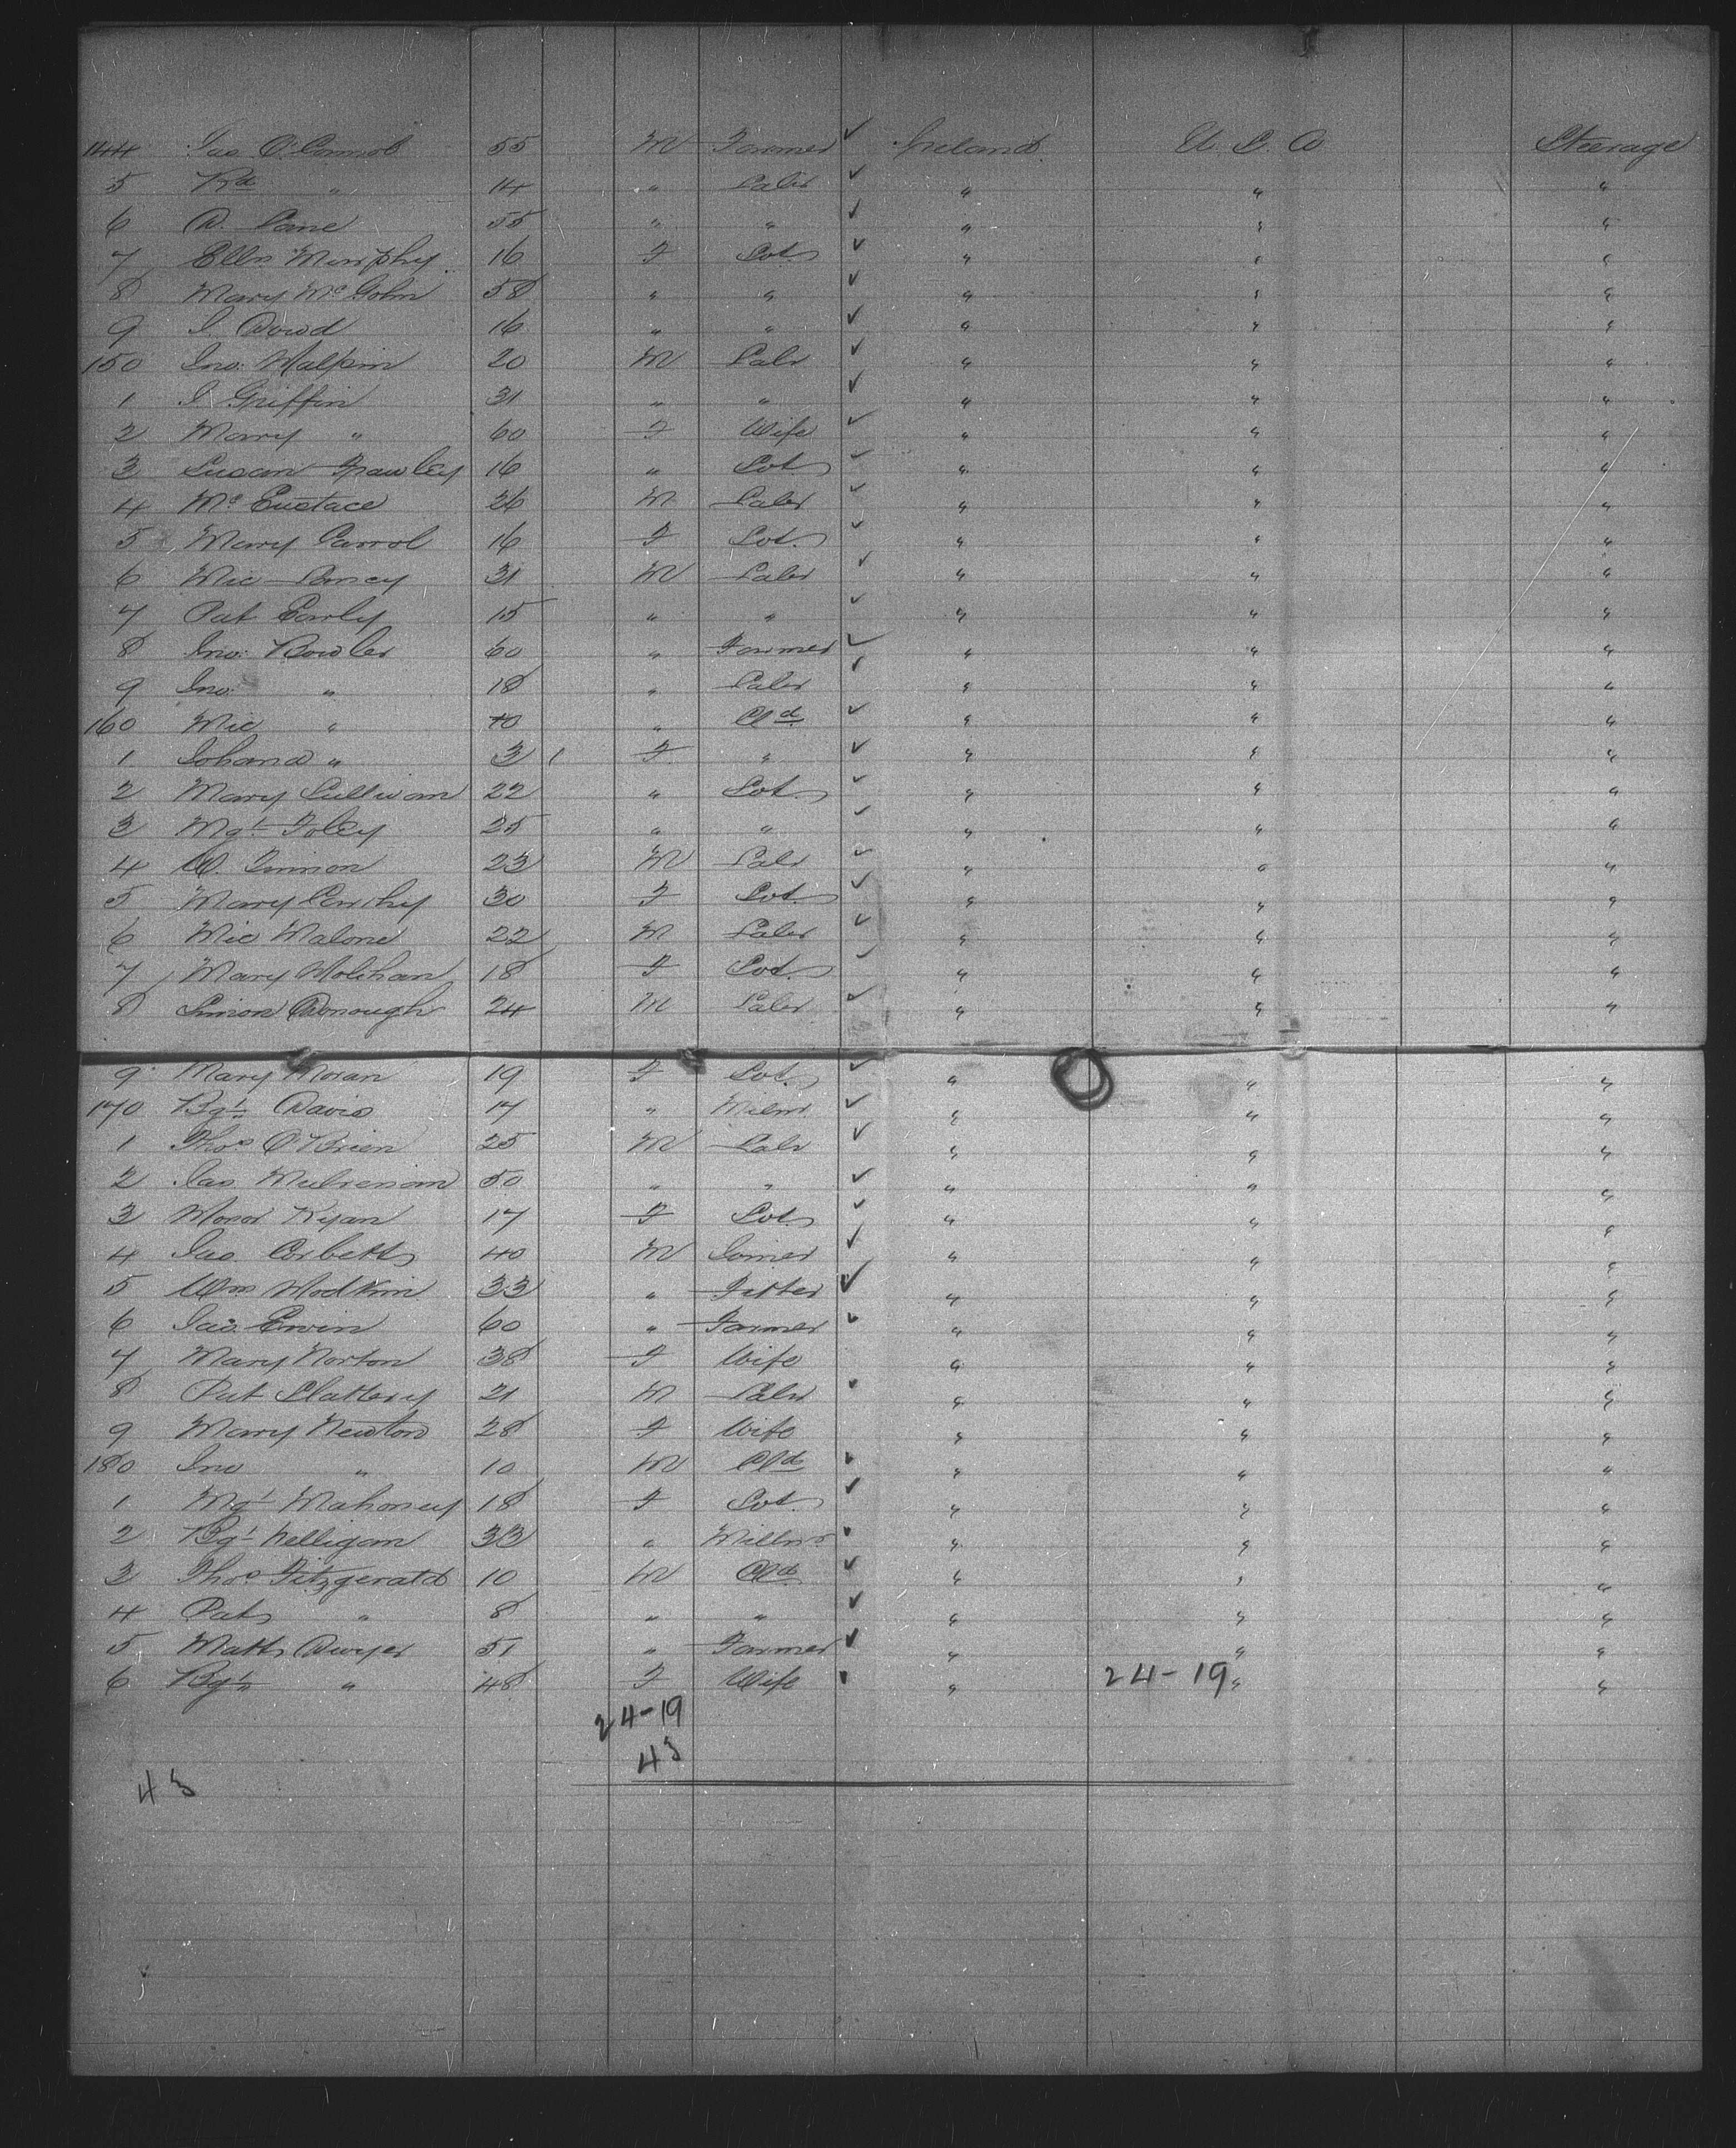 144 Jas O'Connol 55 M Farmer ✓ Ireland U. S. A Steerage
5 Rd " 14 " Labr ✓ " " "
6 D. Lane 55 " " ✓ " " "
7 Elln Murphy 16 F Svt ✓ " " "
8 Mary Mc Gohn 58 " " ✓ " " "
9 J. Dowd 16 " " ✓ " " "
150 Jno: Halpin 20 M Labr ✓ " " "
1 J Griffin 31 " " ✓ " " "
2 Mary " 60 F Wife ✓ " " "
3 Susan Frawley 16 " Svt ✓ " " "
4 Mc Eustace 26 M Labr ✓ " " "
5 Mary Carrol 16 F Svt. ✓ " " "
6 Mic 31 M Labr ✓ " " "
7 Pat Early 15 " " ✓ " " "
8 Jno: Bowler 60 " Farmer ✓ " " "
9 Jno: " 18 " Labr ✓ " " "
160 Mic " 10 " Cld ✓ " " "
1 Johana " 3 F " ✓ " " "
2 Mary Sullivan 22 " Svt. ✓ " " "
3 Mgt Foley 25 " " ✓ " " "
4 23 M Labr ✓ " " "
5 Mary 30 F Svt. ✓ " " "
6 Mic Malone 22 M Labr ✓ " " "
7 Mary Molihan 18 F Svt. ✓ " " "
8 Simon Donough 24 M Labr ✓ " " "
9 Mary Moran 19 F Svt. ✓ " " "
170 Bgt Davis 17 " Milnr ✓ " " "
1 Thos O'Brien 25 M Labr ✓ " " "
2 Jas Mulrenan 50 " " ✓ " " "
3 Honor Ryan 17 F Svt. ✓ " " "
4 Jas. Corbett 40 M Joiner ✓ " " "
5 Wm Hodkin 33 " Fitter ✓ " " "
6 Jas. Erwin 60 " Farmer " " "
7 Mary Norton 38 F Wife " " "
8 Pat Slattery 21 M Labr " " "
9 Mary Newton 28 F Wife " " "
180 Jno " 10 M Cld " " "
1 Mgt Mahoney 18 F Svt. ✓ " " "
2 Bgt Nelligan 33 " Millnr " " "
3 Thos Fitzgerald 10 M Cld ✓ " " "
4 Pat " 8 " " ✓ " " "
5 Matt Dwyer 51 " Farmer ✓ " " "
6 Bgt " 48 F Wife " 24-19 " "
24-19
43
43